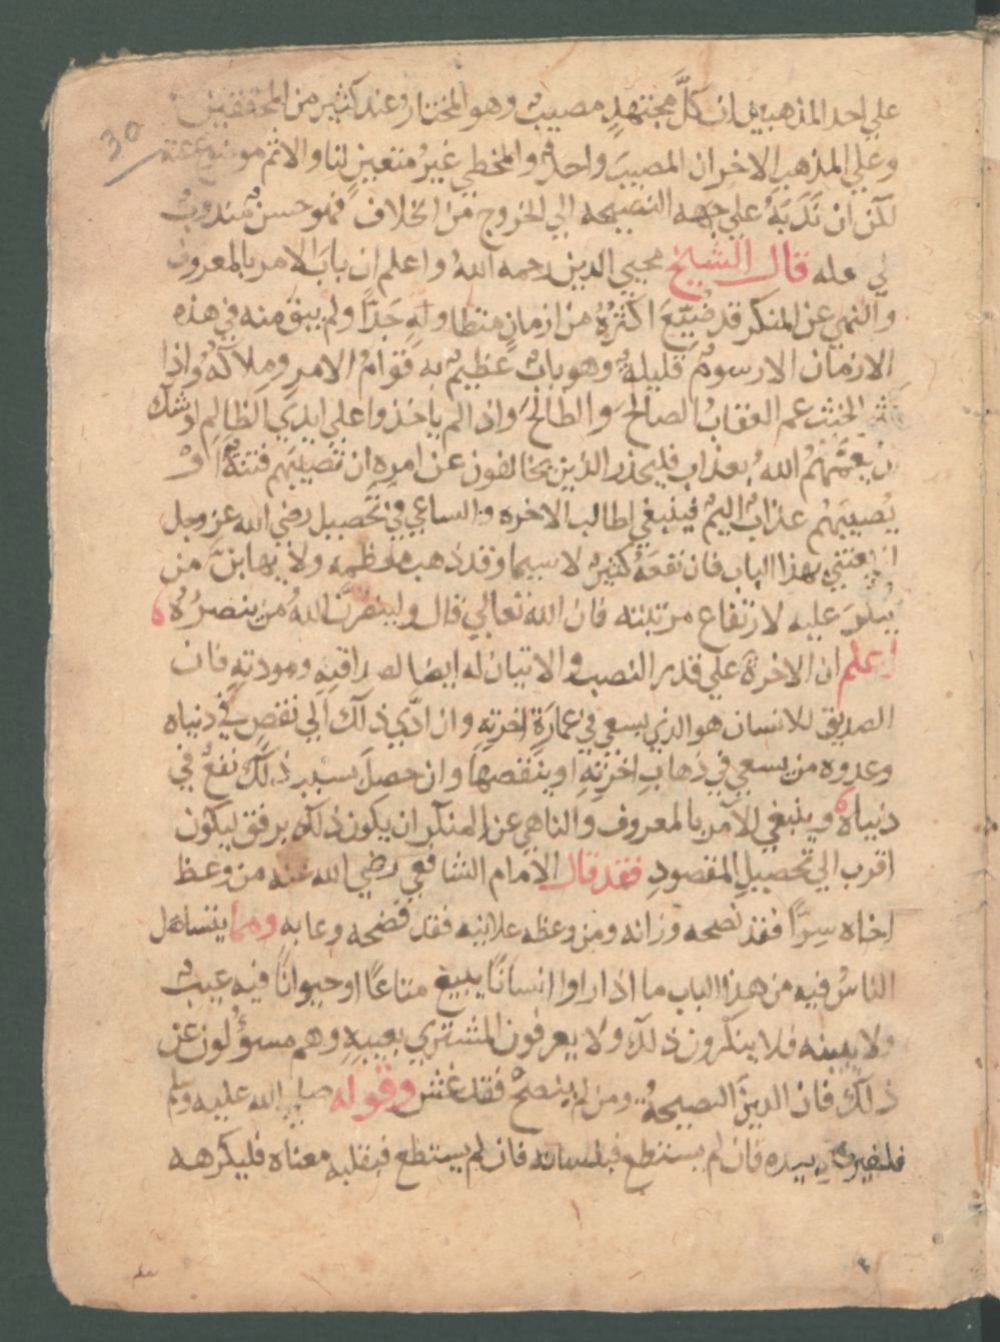 30
علي احد المذهبين ان كلَّ مجتهدٍ مصيبٌ وهو المختار وعند كثير من المحققين
وعلي المذهب الاخر ان المصيبَ واحدٌ والمخطي غيرُ متعينٍ لنا والاثم موضوع عنه
لكن ان نَدَبَهُ علي جهه النصيحه الي الخروج من الخلاف فهو حسن مندوبٌ
لي عله قال الشيخ محيي الدين رحمه اللهُ واعلم ان بابَ الامر بالمعروف
والنهي عن المنكر قد ضُيّعَ اكثرُهُ من ازمانٍ متطاولهٍ جَدًّا ولم يبق منه في هذه
الازمان الا رسومٌ قليلهٌ وهو بابٌ عظيمٌ به قوَامُ الامرِ وملاكُهُ واذا
كثر الخبث عم العقابُ الصالحَ والطالحَ واذا لم ياخذوا علي ايدَي الظالِم اوشك
ان يعمَّهُم اللهُ بعذاب فليحذر الذين يخالفون عن امره ان تصيبَهم فتنةٌ اوْ
يُصيبَهُم عذابٌ اليمٌ فينبغي لطالب الاخره والساعي في تحصيل رضي الله عز وجل
ان يعتني بهذا الباب فان نفعَهُ كثيرٌ لا سيما وقد ذهب معظمه ولا يهابنَّ من
يُنكرَ عليه لارتفاع مرتبته فان الله تعالي قال ولينصُرنَّ اللهُ من ينصرُهُ ه
اعلم ان الاخرةَ علي قدر النصب والاتيان له ايضا لصداقتِهِ ومودتهِ فان
الصديق للانسان هو الذي يسعي في عمارَةِ اخرتِهِ وان ادَّي ذلك الي نقصٍ في دنياه
وعدوه من يسعي في ذهابِ اخرتِهِ او ينقصها وان حصلَ بسبب ذلك نفعٌ في
دنياه ه وينبغي للامر بالمعروف والناهي عن المنكر ان يكون ذلك برفق ليكون
اقرب الي تحصيلِ المقصودِ فقد قال الامام الشافعي رضي الله عنه من وعظ
اخاه سِرًّا فقد نصحه وزانه ومن وعظه علانيه فقد فضحه وعابه ومما يتساهل
الناسُ فيه من هذا الباب ما اذا راوا انسانًا يبيع متاعًا او حيوانًا فيه عيبٌ
ولا يبينه فلا ينكرون ذلك ولا يعرفون المشتري بعيبهِ وهم مسؤلون عن
ذلكَ فان الدينَ النصيحهُ ومن لم ينصحْ فقد غش وقوله صلي الله عليه وسلم
فليغيره بيده فان لم يستطع فبلسانه فان لم يستطع فبقلبه معناه فليكرهه